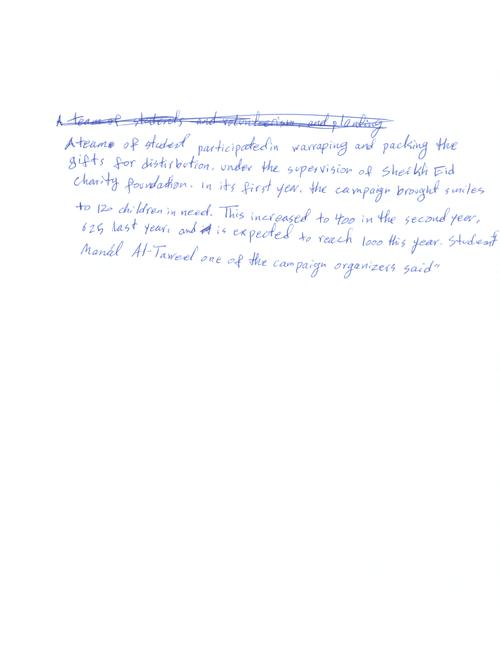 A team of students and volunteerism, and planting
A team of student participated in warraping and packing the
gifts for distirbution. under the supervision of Sheikh Eid
charity foundation. in its first year. the campaign brought smiles
to 120 children in need. This increased to 400 in the second year,
625 last year. and is expected to reach 1000 this year. Student
Manal Al-Taweel one of the campaign organizers said"